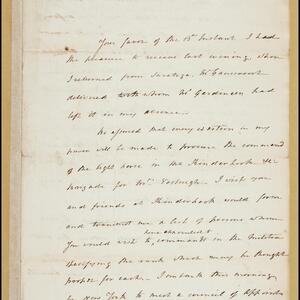 Your favor of the 15th Instant I had
the pleasure to receive last evening, when
I returned from Saratoga. Mr Gansevoort
delivered with whom Mr Gardenier had
left it in my absence.
Be assured that every exertion in my
power will be made to procure the command
of the light horse in the Kinderhook &c
brigade for Mr. Vosburgh. I wish you
and friends at Kinderhook would form
and transmit me a list of persons whom
You would wish to have commissioned to command in the Militia
specifying the rank which may be thought
proper for each. I embark this morning
for New York to meet a council of Appoint